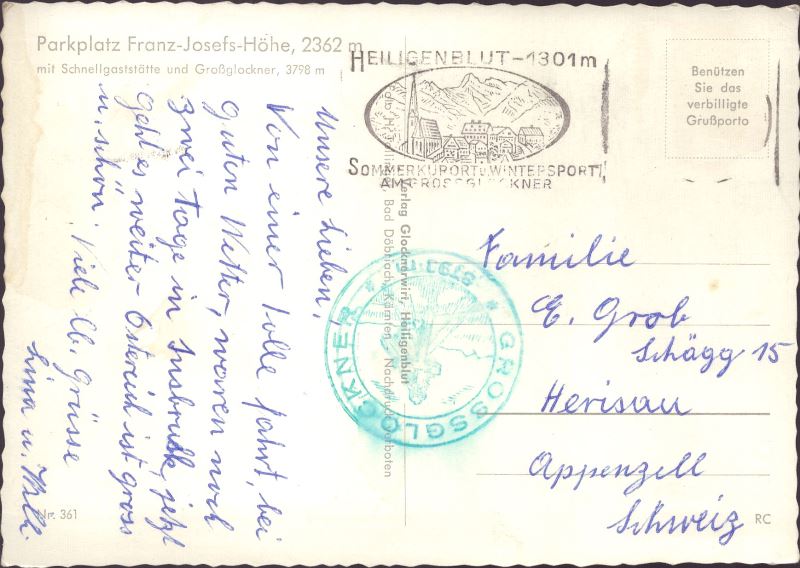 Parkplatz Franz-Josefs-Höhe, 2362 m
mit Schnellgaststätte und Großglockner, 3798 m
HEILIGENBLUT-1301m
SOMMERKURORT U WINTERSPORT
AM GROSSGLOCKNER
Benützen
Sie das
verbilligte
Grußporto
Unsere Lieben,
Von einer tolle fahrt, bei
guten Wetter, waren noch
zwei Tage in Insbruck, jetzt
geht es weiter Östereich ist gross
u. schön. Viele lb. Grüsse
Lina u. Willi.
Verlag Glocknerwirt, Heiligenblut
Bad Döbriach, Kärnten - Nachdruck verboten
GROSSGLOCKNER
3797 m
Familie
E. Grob
Schägg 15
Herisau
Appenzell
Schweiz
Nr. 361
RC